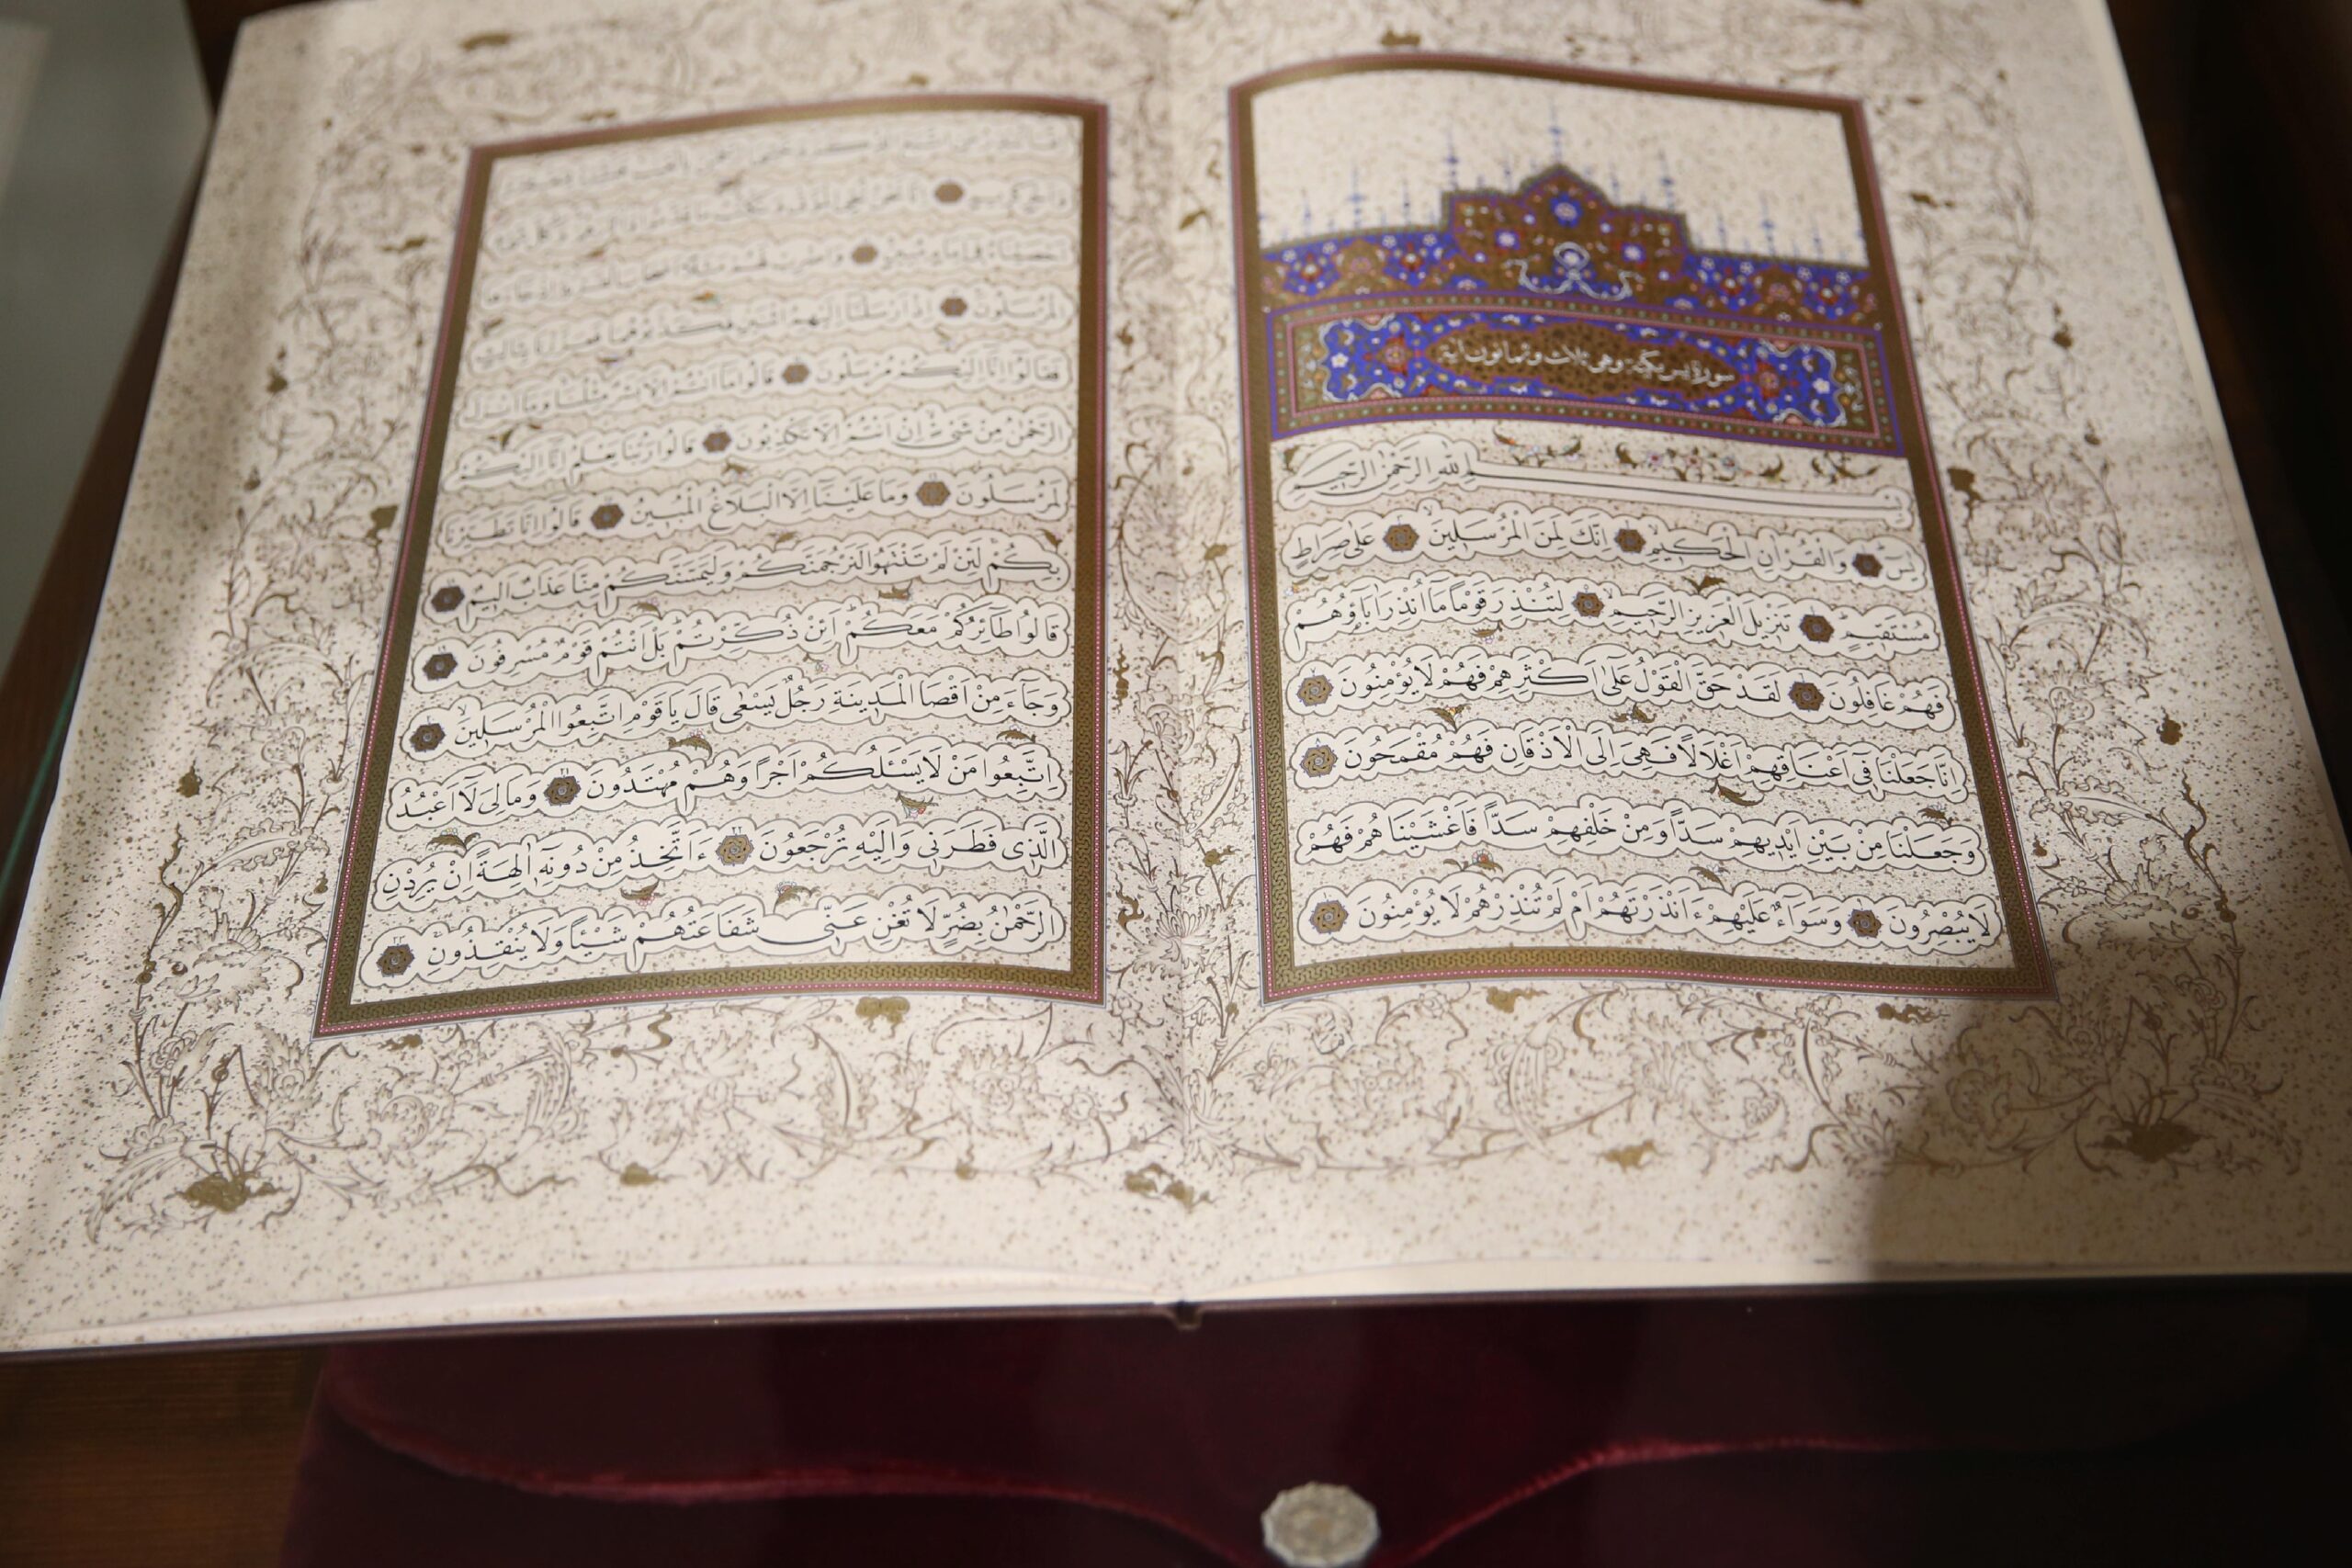 سورة يس مكية وهى ثلاث وثمانون آية
بسم الله الرحمن الرحيم
يٰسٓ وَالْقُرْاٰنِ الْحَكِيمِ اِنَّكَ لَمِنَ الْمُرْسَلِينَ عَلٰى صِرَاطٍ
مُسْتَقِيمٍ تَنْزِيلَ الْعَزِيزِ الرَّحِيمِ لِتُنْذِرَ قَوْمًا مَٓا اُنْذِرَ اٰبَٓاؤُهُمْ
فَهُمْ غَافِلُونَ لَقَدْ حَقَّ الْقَوْلُ عَلٰٓى اَكْثَرِهِمْ فَهُمْ لَا يُؤْمِنُونَ
اِنَّا جَعَلْنَا فِٓى اَعْنَاقِهِمْ اَغْلَالًا فَهِىَ اِلَى الْاَذْقَانِ فَهُمْ مُقْمَحُونَ
وَجَعَلْنَا مِنْ بَيْنِ اَيْدِيهِمْ سَدًّا وَمِنْ خَلْفِهِمْ سَدًّا فَاَغْشَيْنَاهُمْ فَهُمْ
لَا يُبْصِرُونَ وَسَوَٓاءٌ عَلَيْهِمْ ءَاَنْذَرْتَهُمْ اَمْ لَمْ تُنْذِرْهُمْ لَا يُؤْمِنُونَ
وَاَجْرٍ كَرِيمٍ اِنَّا نَحْنُ نُحْيِ الْمَوْتٰى وَنَكْتُبُ مَا قَدَّمُوا وَاٰثَارَهُمْ وَكُلَّ شَىْءٍ
اَحْصَيْنَاهُ فِٓى اِمَامٍ مُبِينٍ وَاضْرِبْ لَهُمْ مَثَلًا اَصْحَابَ الْقَرْيَةِ اِذْ جَٓاءَهَا
الْمُرْسَلُونَ اِذْ اَرْسَلْنَٓا اِلَيْهِمُ اثْنَيْنِ فَكَذَّبُوهُمَا فَعَزَّزْنَا بِثَالِثٍ
فَقَالُٓوا اِنَّٓا اِلَيْكُمْ مُرْسَلُونَ قَالُوا مَٓا اَنْتُمْ اِلَّا بَشَرٌ مِثْلُنَا وَمَٓا اَنْزَلَ
الرَّحْمٰنُ مِنْ شَىْءٍ اِنْ اَنْتُمْ اِلَّا تَكْذِبُونَ قَالُوا رَبُّنَا يَعْلَمُ اِنَّٓا اِلَيْكُمْ
لَمُرْسَلُونَ وَمَا عَلَيْنَٓا اِلَّا الْبَلَاغُ الْمُبِينُ قَالُٓوا اِنَّا تَطَيَّرْنَا
بِكُمْ لَئِنْ لَمْ تَنْتَهُوا لَنَرْجُمَنَّكُمْ وَلَيَمَسَّنَّكُمْ مِنَّا عَذَابٌ اَلِيمٌ
قَالُوا طَٓائِرُكُمْ مَعَكُمْ اَئِنْ ذُكِّرْتُمْ بَلْ اَنْتُمْ قَوْمٌ مُسْرِفُونَ
وَجَٓاءَ مِنْ اَقْصَا الْمَدِينَةِ رَجُلٌ يَسْعٰى قَالَ يَا قَوْمِ اتَّبِعُوا الْمُرْسَلِينَ
اِتَّبِعُوا مَنْ لَا يَسْئَلُكُمْ اَجْرًا وَهُمْ مُهْتَدُونَ وَمَالِىَ لَٓا اَعْبُدُ
الَّذِى فَطَرَنِى وَاِلَيْهِ تُرْجَعُونَ ءَاَتَّخِذُ مِنْ دُونِهٓ اٰلِهَةً اِنْ يُرِدْنِ
الرَّحْمٰنُ بِضُرٍّ لَا تُغْنِ عَنّٖى شَفَاعَتُهُمْ شَيْئًا وَلَا يُنْقِذُونِ